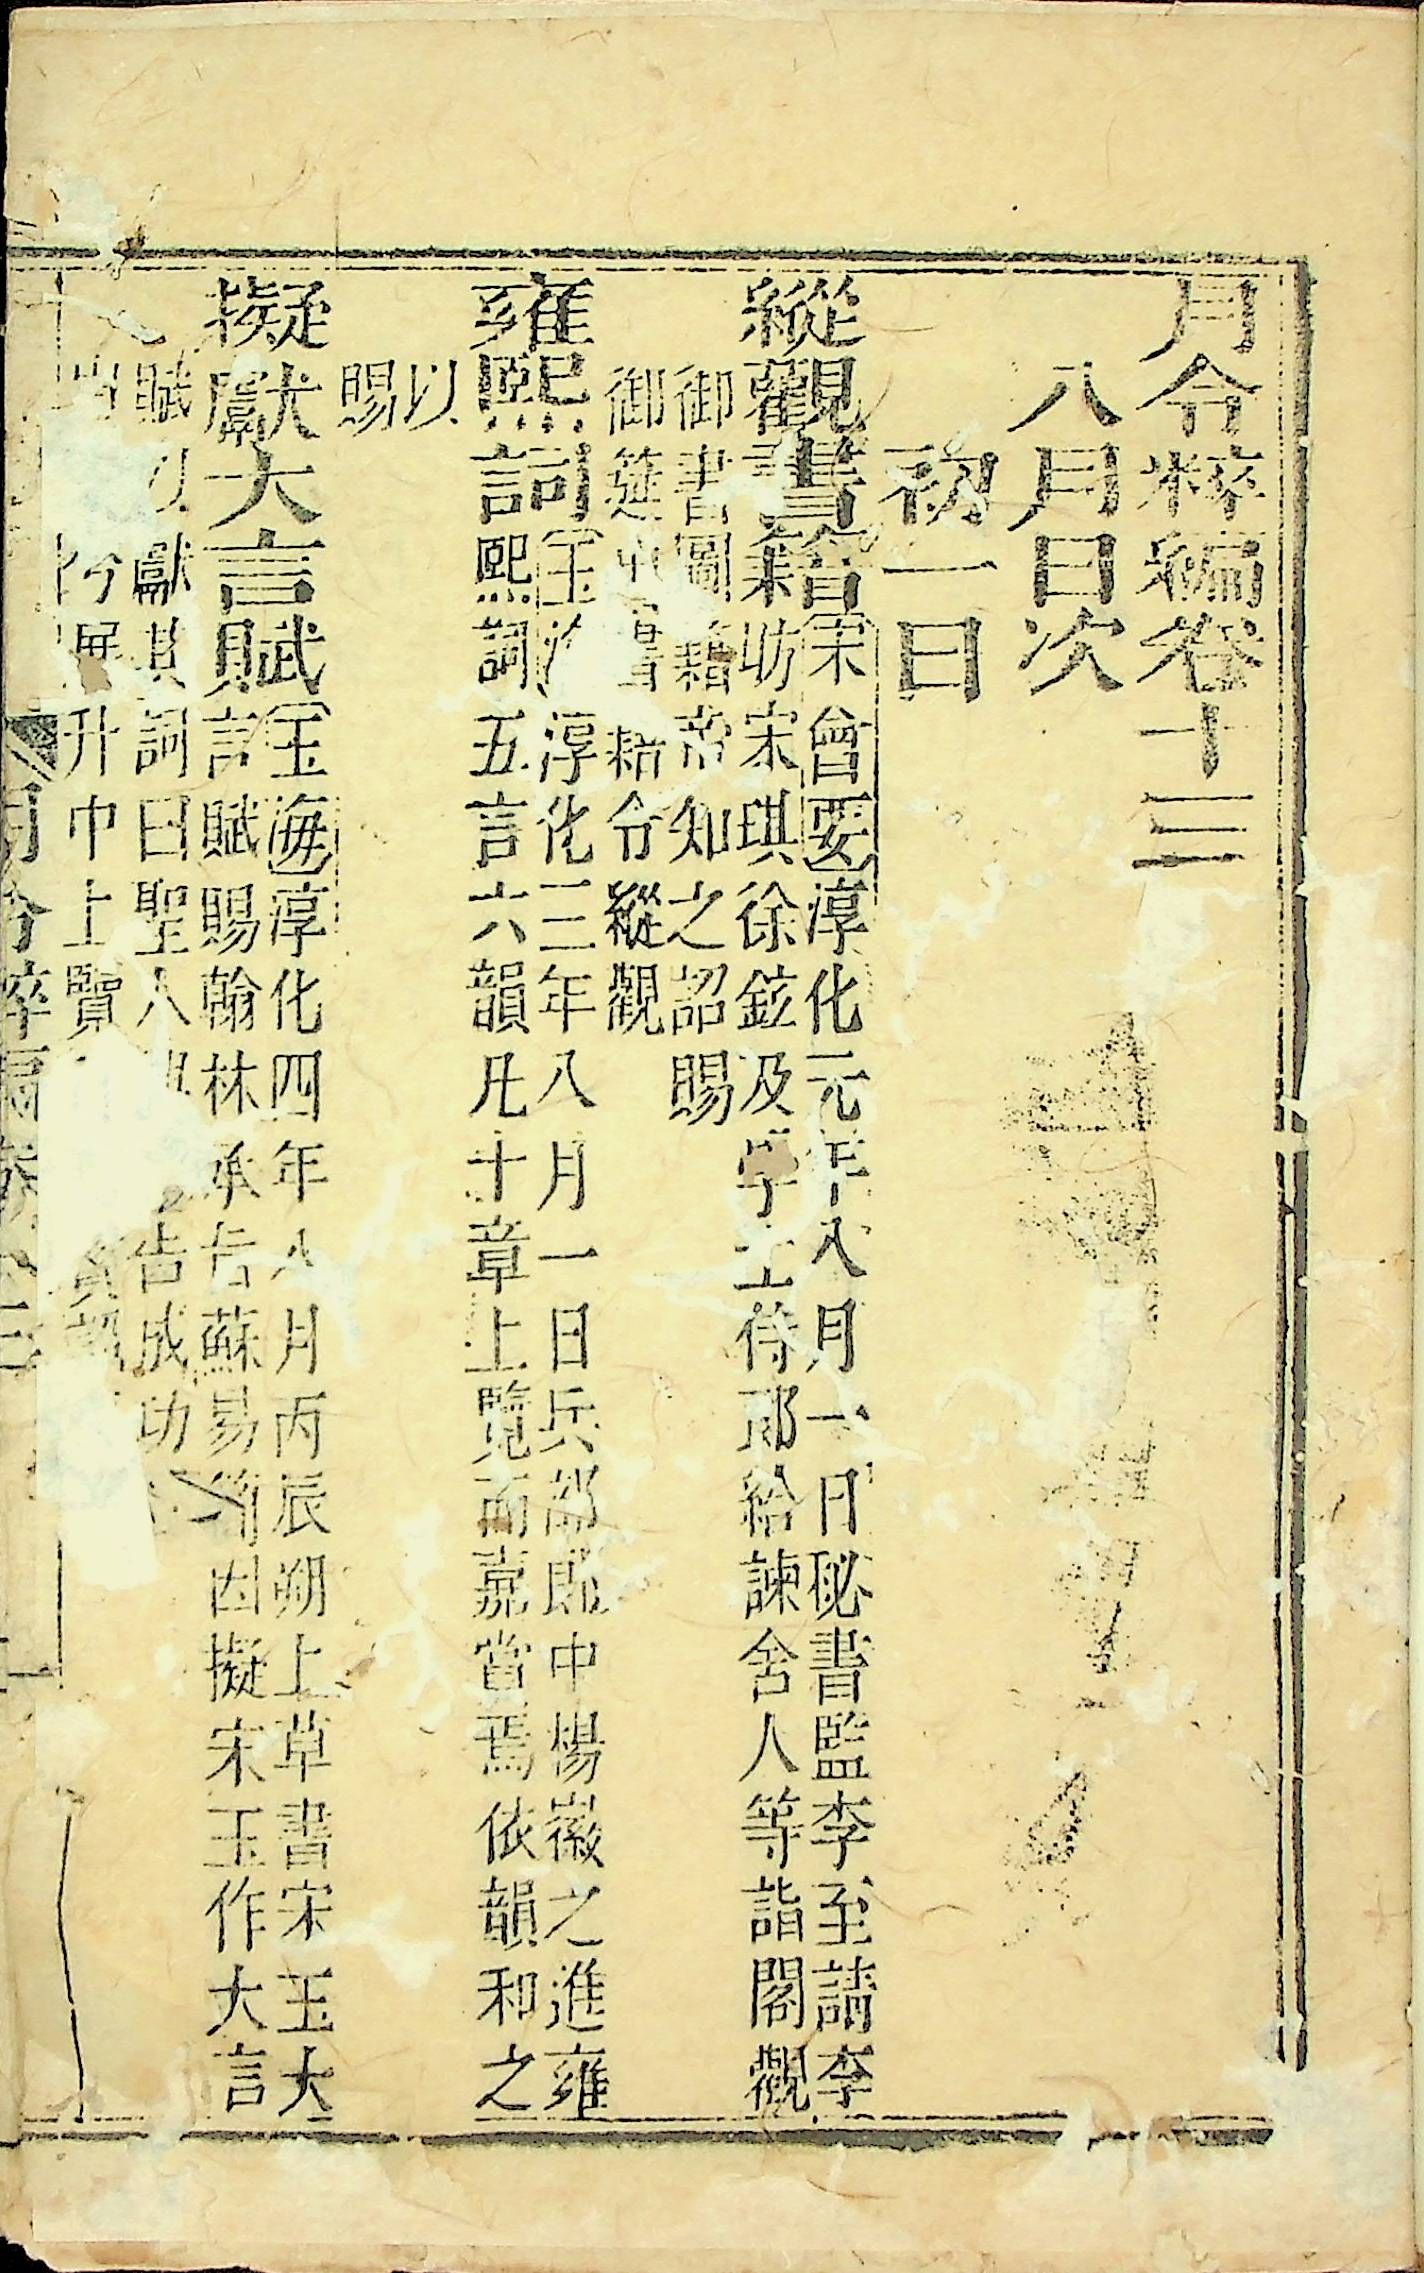 月令粹編卷十三
八月日次
初一日
縱觀書籍宋會要淳化元年八月一日秘書監李至請李
昉宋琪徐鉉及學士侍郎給諫舍人等詣閣觀
御書圖籍帝知之詔賜
御筵 書籍令縱觀
雍熙詞玉海淳化三年八月一日兵部郎中楊徽之進雍
熙詞五言六韻凡十章上覽而嘉賞焉依韻和之
以
賜
擬獻大言賦玉海淳化四年八月丙辰朔上草書宋玉大
言賦賜翰林承旨蘇易簡因擬宋玉作大言
賦以獻其詞曰聖人 告成功
升中上覽
月令粹編卷十三